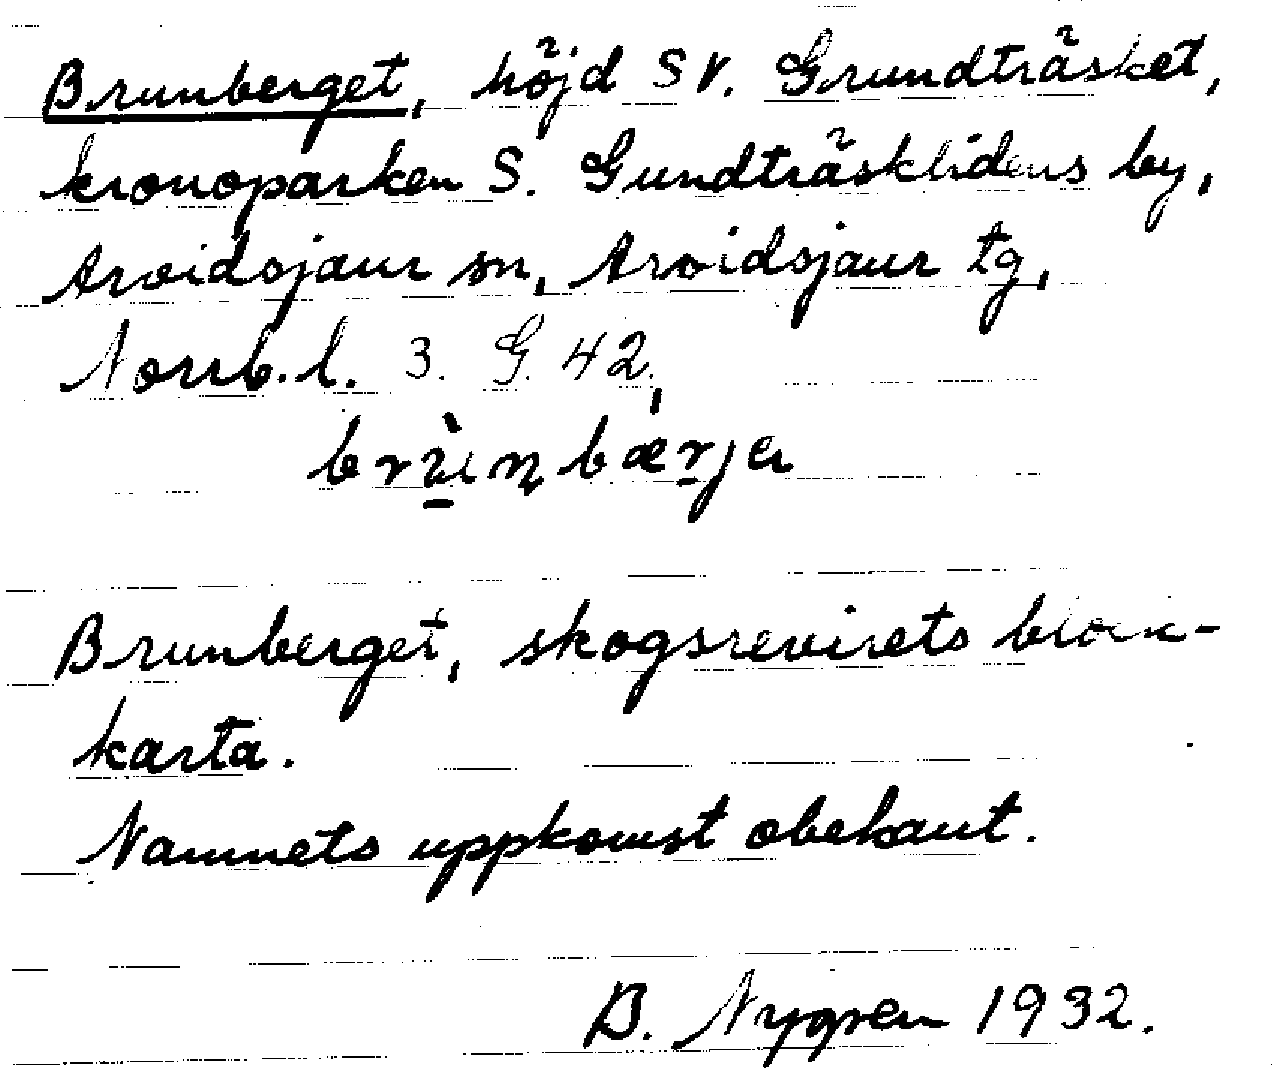 Brunberget, höjd SV. Grundträsket,
kronoparken S. Gundträsklidens by,
Arvidsjaur sn, Arvidsjaur tg,
Norrb. l. 3. G. 42,
Brunberget, skogsrevirets block-
karta.
Namnets uppkomst obekant.
B. Nygren 1932.